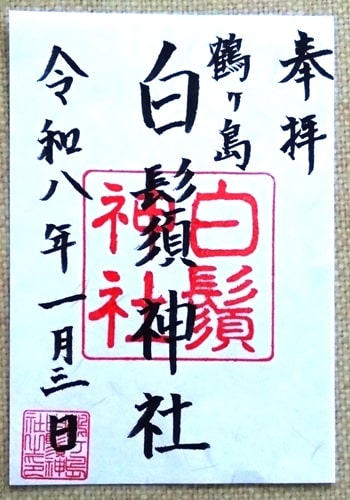 奉拝
鶴ヶ島
白髭須神社
令和八年一月三日
白鬚
神社